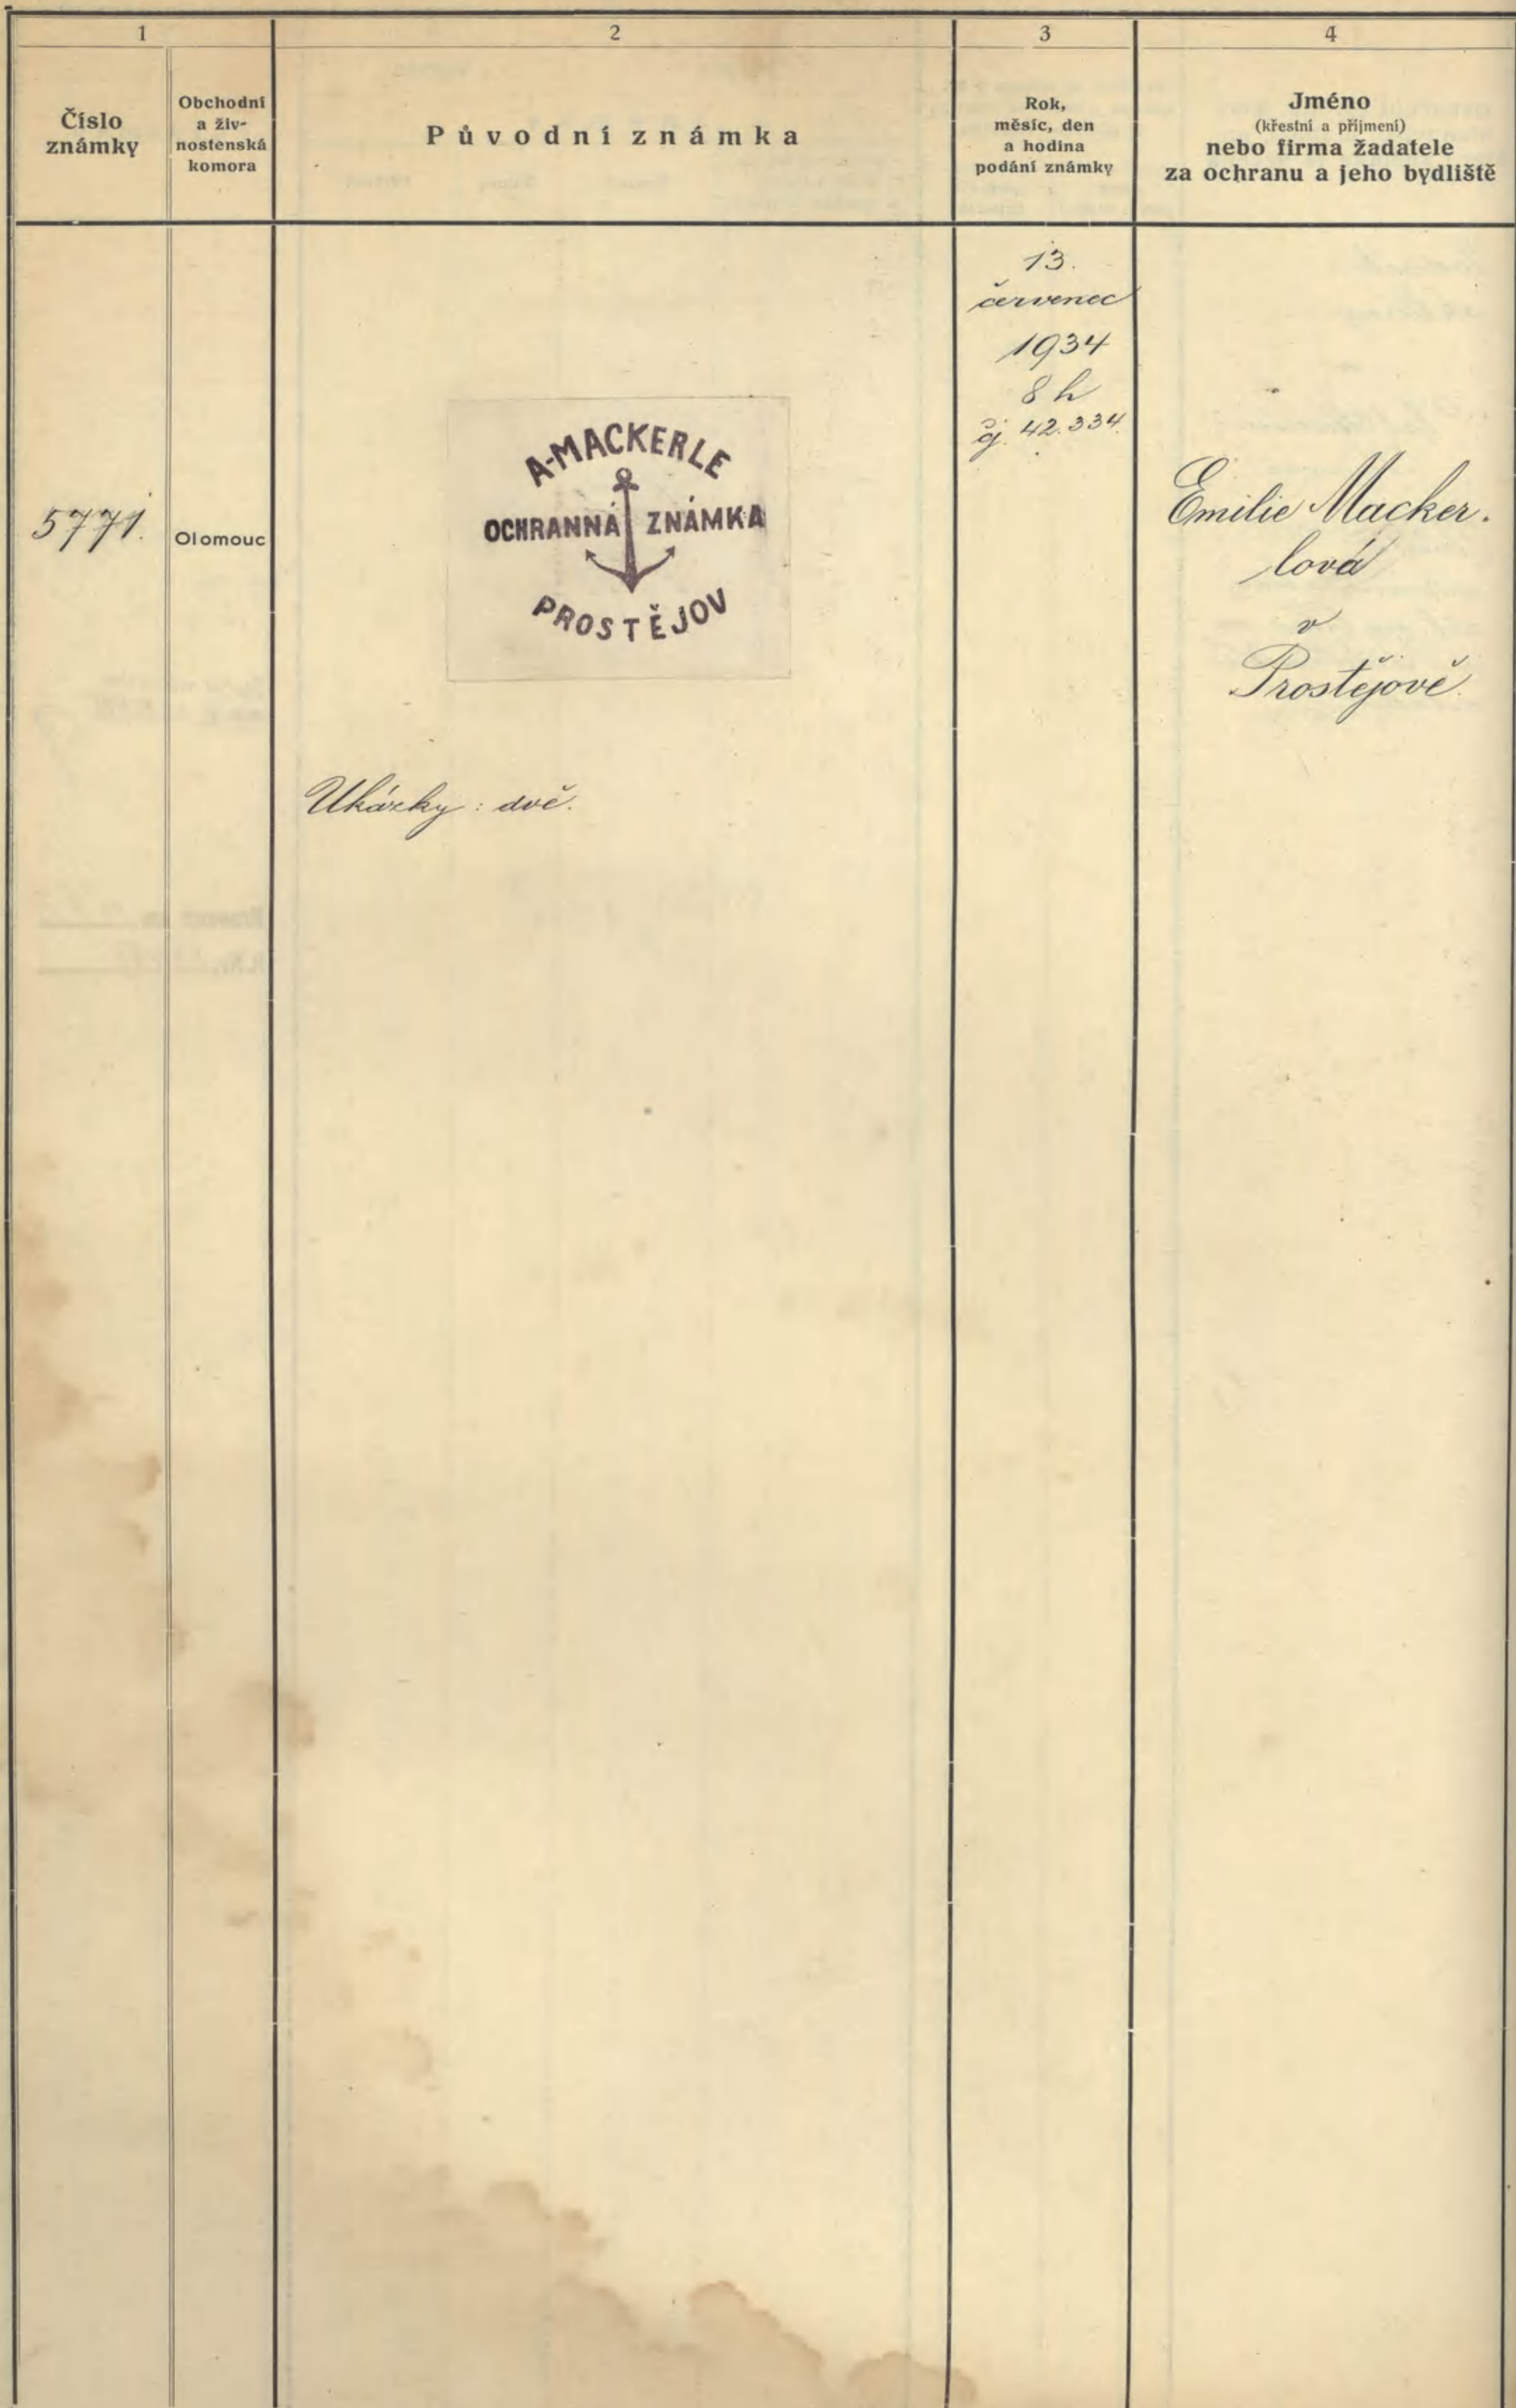 1
2
3
4
Číslo
známky
Obchodní
a živ-
nostenská
komora
Původní známka
Rok,
měsíc, den
a hodina
podání známky
Jméno
(křestní a příjmení)
nebo firma žadatele
za ochranu a jeho bydliště
5771.
Olomouc
A-MACKERLE
OCHRANNÁ ZNÁMKA
PROSTĚJOV
Ukázky: dvě.
13.
červenec
1934
8 h
čj. 42.334.
Emilie Macker.
lová
v
Prostějově.